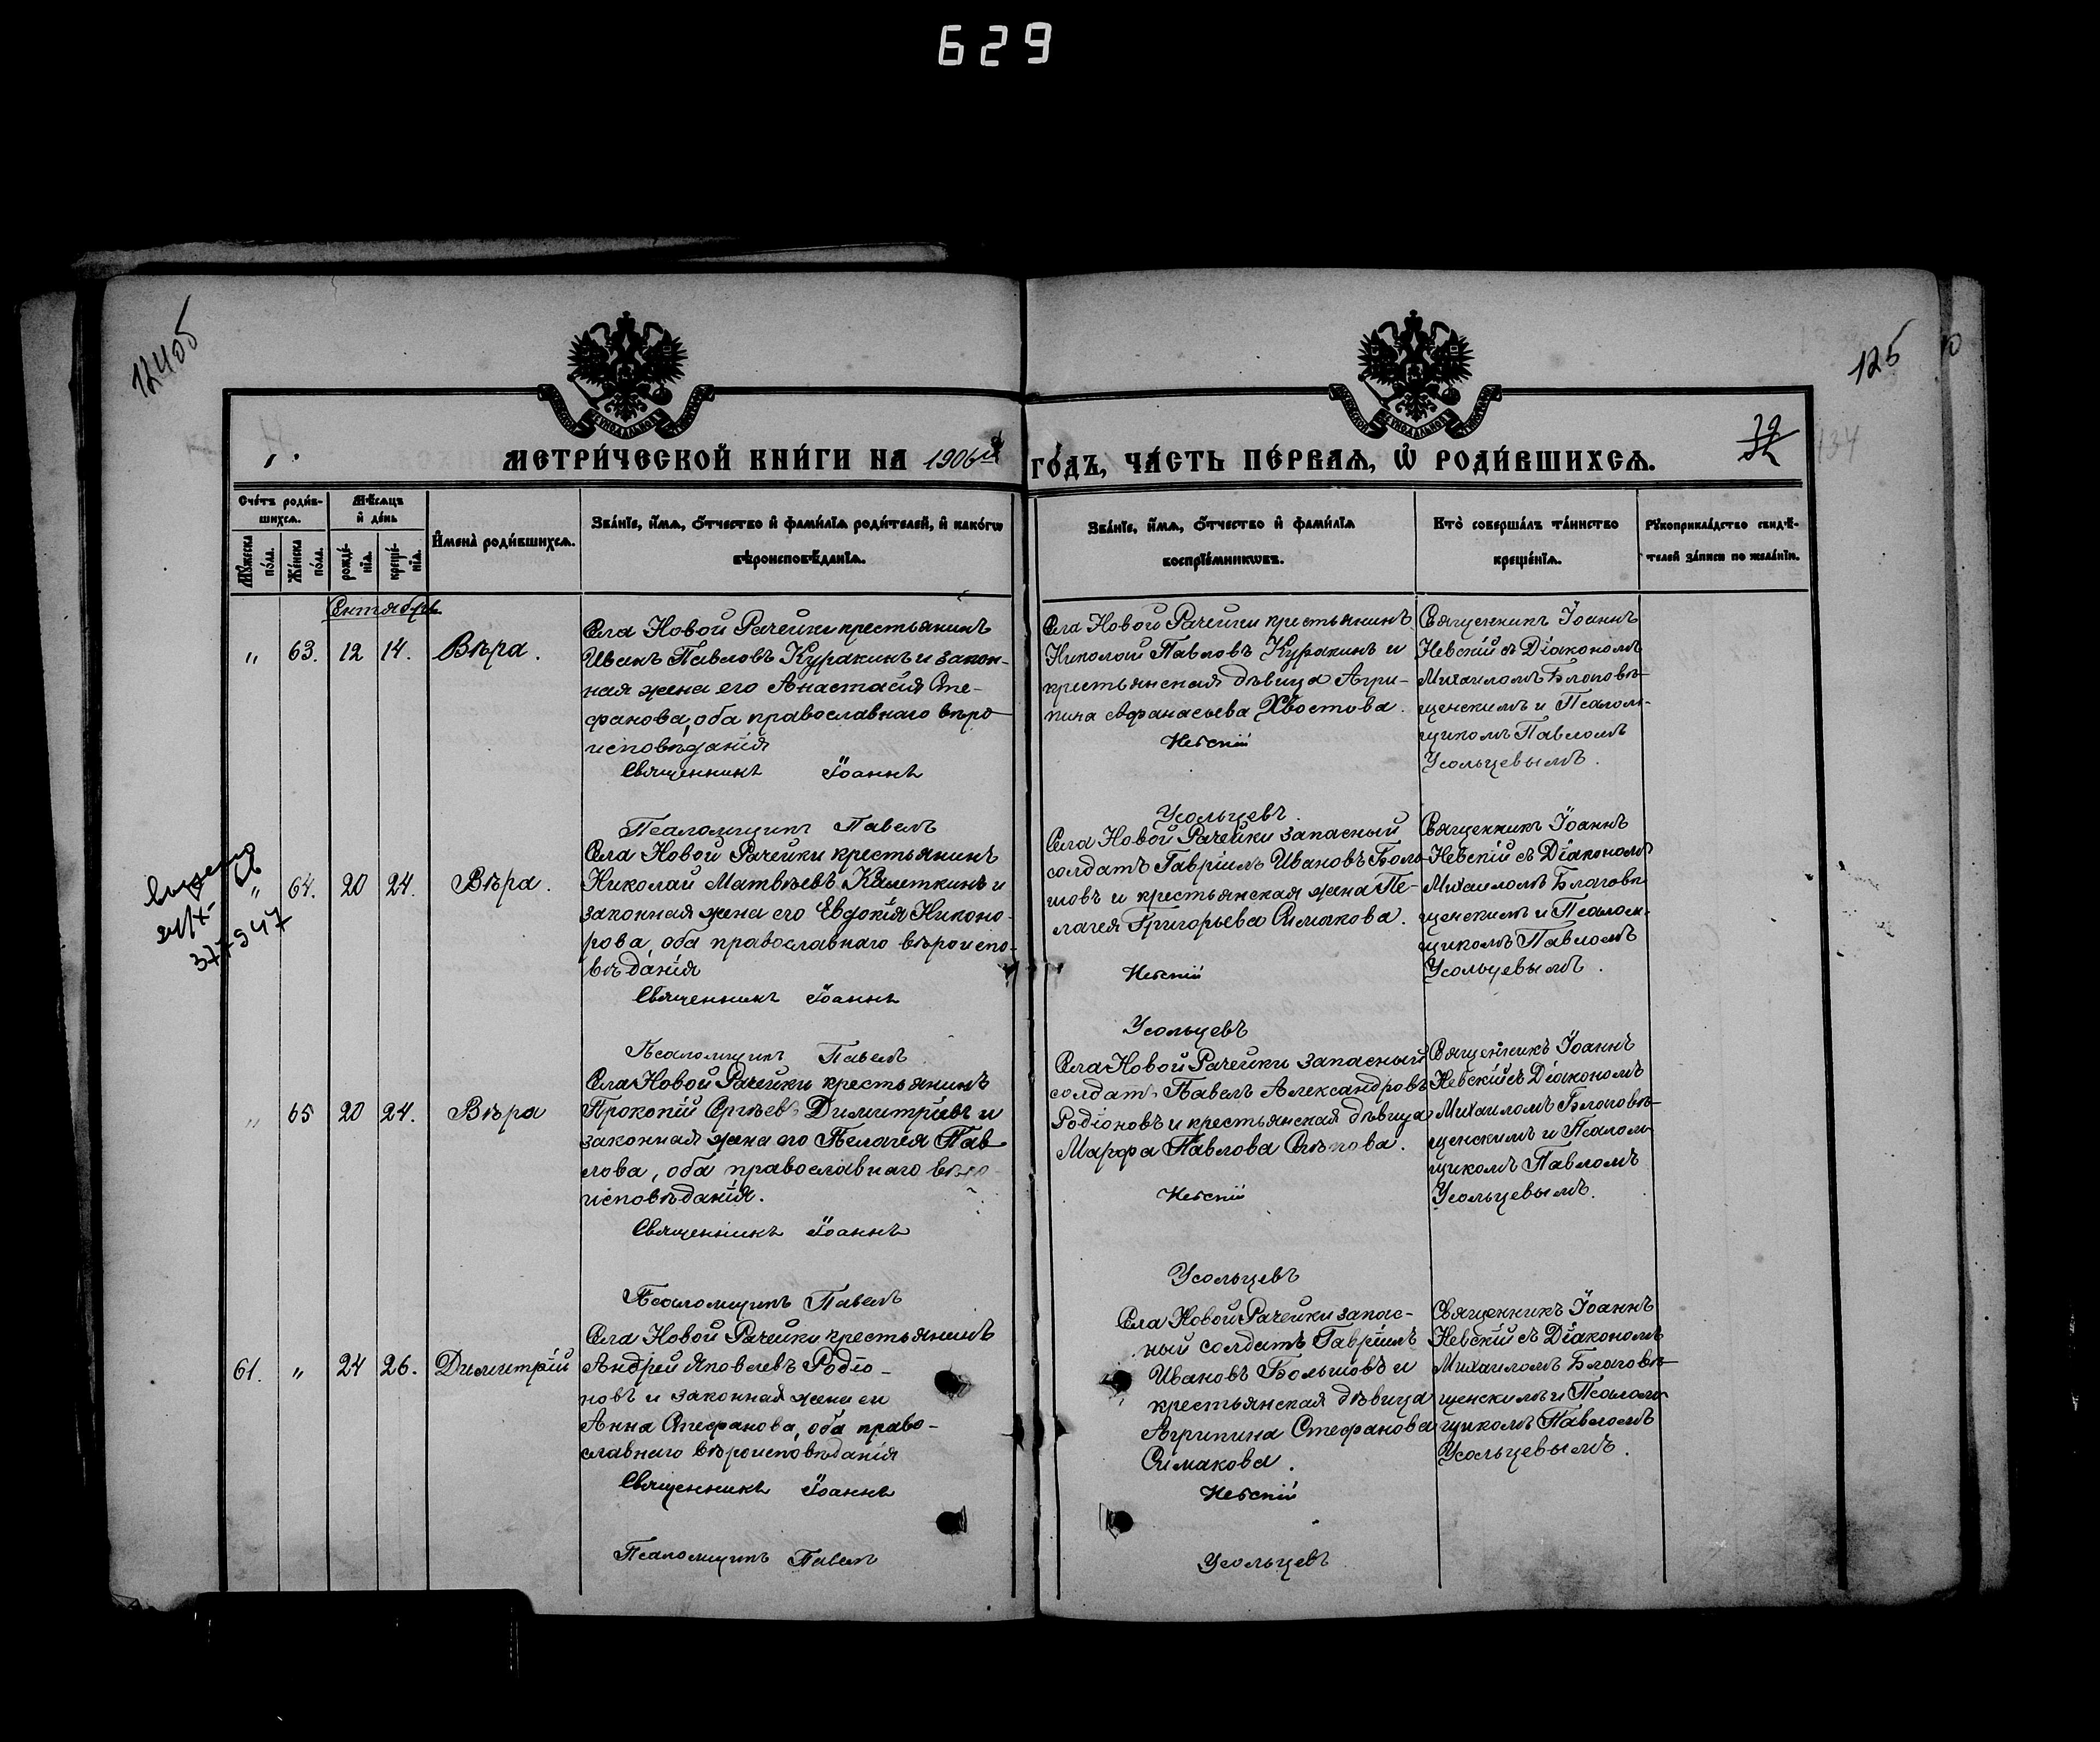 629
124об
125
МЕТРИ́ЧЕСКОЙ КНИ́ГИ НА 1906й ГО́ДЪ, ЧА́СТЬ ПЕ́РВАѦ, Ѡ҆ РОДИ́ВШИХСѦ.
134
Сче́тъ роди́в-
шихсѧ.
Мѣ́сѧцъ
и҆ де́нь
Мꙋ́жеска
по́ла.
Же́нска
по́ла.
рожде́-
нїѧ.
креще́-
нїѧ.
И҆мена̀ роди́вшихсѧ.
Зва́нїе, и҆́мѧ, ѻ҆́тчество и҆ фами́лїѧ роди́телей, и҆ како́гѡ
вѣроисповѣ́данїѧ.
Зва́нїе, и҆́мѧ, ѻ҆́тчество и҆ фами́лїѧ
воспрїе́мникѡвъ.
Кто̀ соверша́лъ та́инство
креще́нїѧ.
Рꙋкоприкла́дство свидѣ́-
телей за́писи по жела́нїю.
Сентябрь
" 63. 12 14. Вѣра.
Села Новой Рачейки крестьянинъ
Иванъ Павловъ Куракинъ и закон-
ная жена его Анастасія Сте-
фанова, оба православнаго вѣро-
исповѣданія
Священникъ Іоаннъ
Псаломщикъ Павелъ
Села Новой Рачейки крестьянинъ
Николай Павловъ Куракинъ и
крестьянская дѣвица Агри-
пина Афанасьева Хвостова.
Невскій
Усольцевъ
Священникъ Іоаннъ
Невскій съ Діакономъ
Михаиломъ Благовѣ-
щенскимъ и Псалом-
щикомъ Павломъ
Усольцевымъ.
377947
" 64. 20 24. Вѣра.
Села Новой Рачейки крестьянинъ
Николай Матвѣевъ Калеткинъ и
законная жена его Евдокія Никоно-
рова, оба православнаго вѣроиспо-
вѣданія
Священникъ Іоаннъ
Псаломщикъ Павелъ
Села Новой Рачейки запасный
солдатъ Гавріилъ Ивановъ Боль-
шовъ и крестьянская жена Пе-
лагея Григорьева Симакова.
Невскій
Усольцевъ
Священникъ Іоаннъ
Невскій съ Діакономъ
Михаиломъ Благовѣ-
щенскимъ и Псалом-
щикомъ Павломъ
Усольцевымъ.
" 65 20 24. Вѣра
Села Новой Рачейки крестьянинъ
Прокопій Сергѣевъ Димитріевъ и
законная жена его Пелагея Пав-
лова, оба православнаго вѣро-
исповѣданія.
Священникъ Іоаннъ
Псаломщикъ Павелъ
Села Новой Рачейки запасный
солдатъ Павелъ Александровъ
Родіоновъ и крестьянская дѣвица
Марфа Павлова
Невскій
Усольцевъ
Священникъ Іоаннъ
Невскій съ Діакономъ
Михаиломъ Благовѣ-
щенскимъ и Псалом-
щикомъ Павломъ
Усольцевымъ.
61. " 24 26. Димитрій
Села Новой Рачейки крестьянинъ
Андрей Яковлевъ Родіо-
новъ и законная жена его
Анна Стефанова, оба право-
славнаго вѣроисповѣданія
Священникъ Іоаннъ
Псаломщикъ Павелъ
Села Новой Рачейки запас-
ный солдатъ Гавріилъ
Ивановъ Большовъ и
крестьянская дѣвица
Агрипина Стефанова
Симакова.
Невскій
Усольцевъ
Священникъ Іоаннъ
Невскій съ Діакономъ
Михаиломъ Благовѣ-
щенскимъ и Псалом-
щикомъ Павломъ
Усольцевымъ.